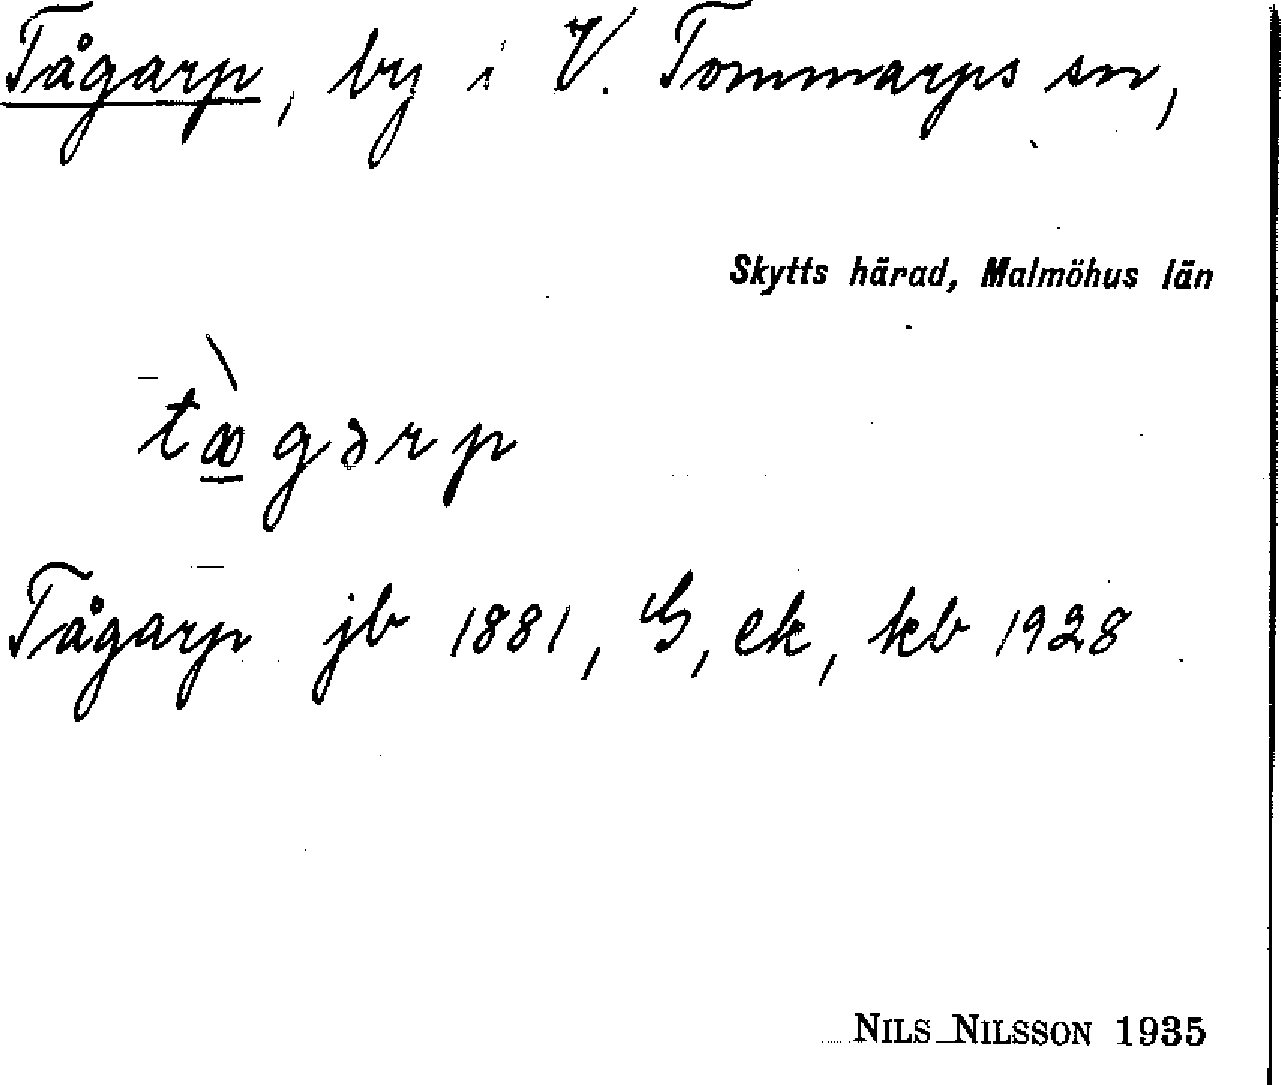 Tågarp, by i V. Tommarps sn,
Skytts härad, Malmöhus län
tàgərp
Tågarp jb 1881, G, ek, kb 1928
NILS NILSSON 1935